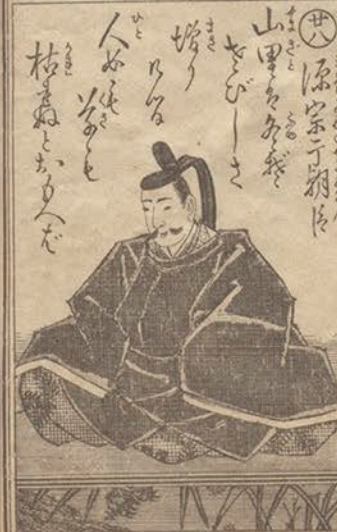 廿八
源宗于朝臣
山里は冬ぞ
さびしさ
増り
ける
人めも
草も
枯ぬとおもへば